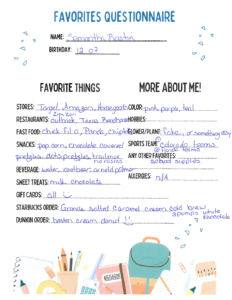 FAVORITES QUESTIONNAIRE
NAME: Samantha
BIRTHDAY: 12 07
FAVORITE THINGS
MORE ABOUT ME!
STORES: Target, Amazon, Homegoods
COLOR: pink, purple, teal
RESTAURANTS: outback, Texas Roadhouse
HOBBIES:
FAST FOOD: chick fil a, Panda, chipotle
FLOWER/PLANT: fake, or something easy
SNACKS: popcorn, chocolate covered
pretzels, dots pretzels, trail mix
no raisins
SPORTS TEAM: Colorado teams
Florida teams
ANY OTHER FAVORITES:
school supplies
BEVERAGE: water, rootbeer, arnold palmer
ALLERGIES: n/a
SWEET TREATS: milk chocolate
GIFT CARDS: all :)
STARBUCKS ORDER: Grande salted caramel cream cold brew
2 pumps white
chocolate
DUNKIN ORDER: boston cream donut